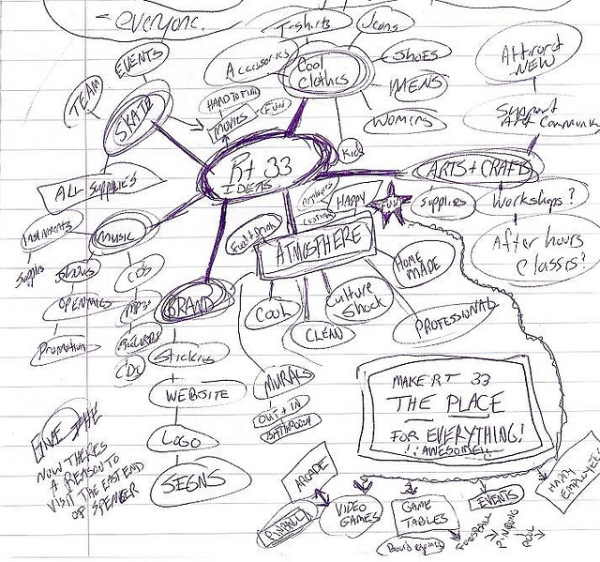 everyone.
T-shirts
Jeans
EVENTS
Accessories
Cool
clothes
SHOES
Attract
NEW
TEAM
HARD TO FIND
MENS
SKATE
MOVIES
FUN
WOMENS
Support
Art Community
Kids
Rt 33
IDEAS
ARTS + CRAFTS
ALL SUPPLIES
HAPPY
FUN
Supplies
Workshops?
Instruments
MUSIC
Food + Drink
ATMOSPHERE
HOME
MADE
After hours
classes?
Supplies
Shows
CDs
BRAND
OPEN MICS
MP3s
COOL
Culture
Shock
PROFESSIONAL
CLEAN
Promotion
Records
CDs
Stickers
MURALS
WEBSITE
OUT + IN
BATHROOM
MAKE RT 33
THE PLACE
FOR EVERYTHING!
AWESOME
LOGO
NOW THERES
A REASON TO
VISIT THE EAST END
OF SPENCER
SIGNS
ARCADE
PINBALL
VIDEO
GAMES
GAME
TABLES
EVENTS
HAPPY
EMPLOYEES
Board games
FOOSBALL
PING PONG
POOL